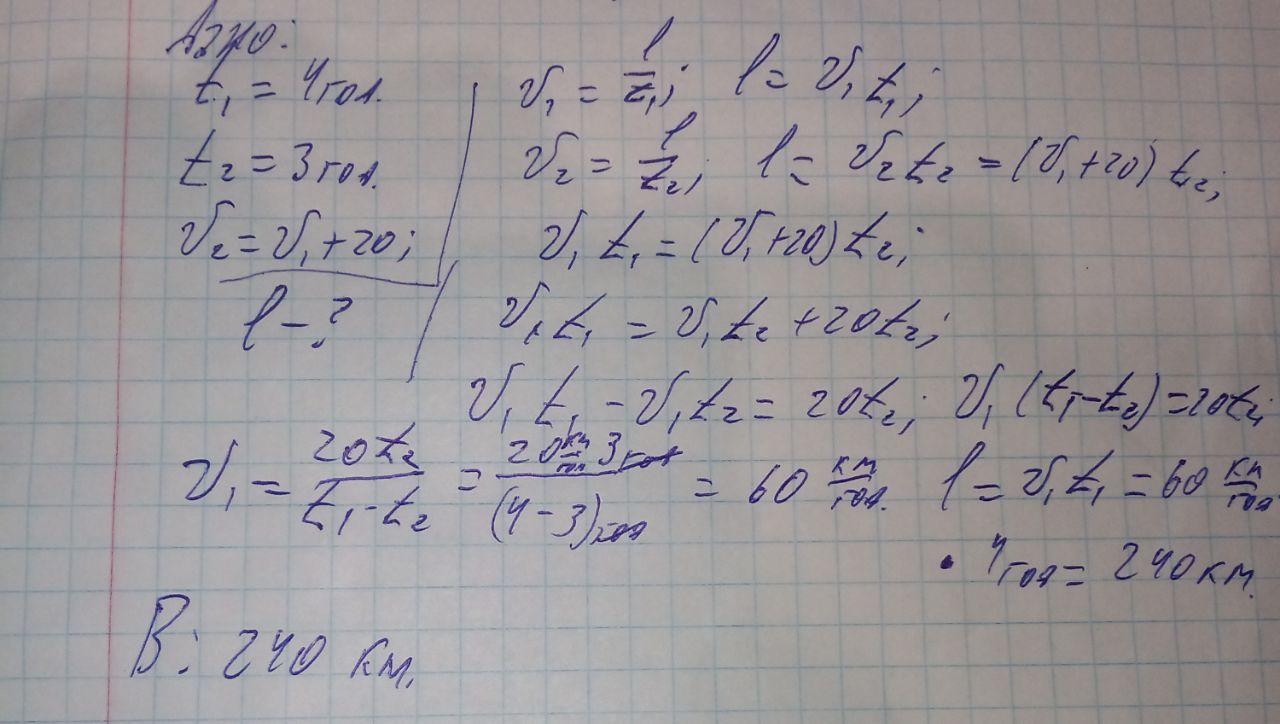 Дано:
t₁ = 4 год.
t₂ = 3 год.
v₂ = v₁ + 20;
l - ?
v₁ = l/t₁; l = v₁ t₁;
v₂ = l/t₂; l = v₂ t₂ = (v₁ + 20) t₂;
v₁ t₁ = (v₁ + 20) t₂;
v₁ t₁ = v₁ t₂ + 20 t₂;
v₁ t₁ - v₁ t₂ = 20 t₂; v₁ (t₁ - t₂) = 20 t₂;
v₁ = 20 t₂ / (t₁ - t₂) = 20 км/год 3 год / (4 - 3) год = 60 км/год. l = v₁ t₁ = 60 км/год
· 4 год = 240 км.
В: 240 км.